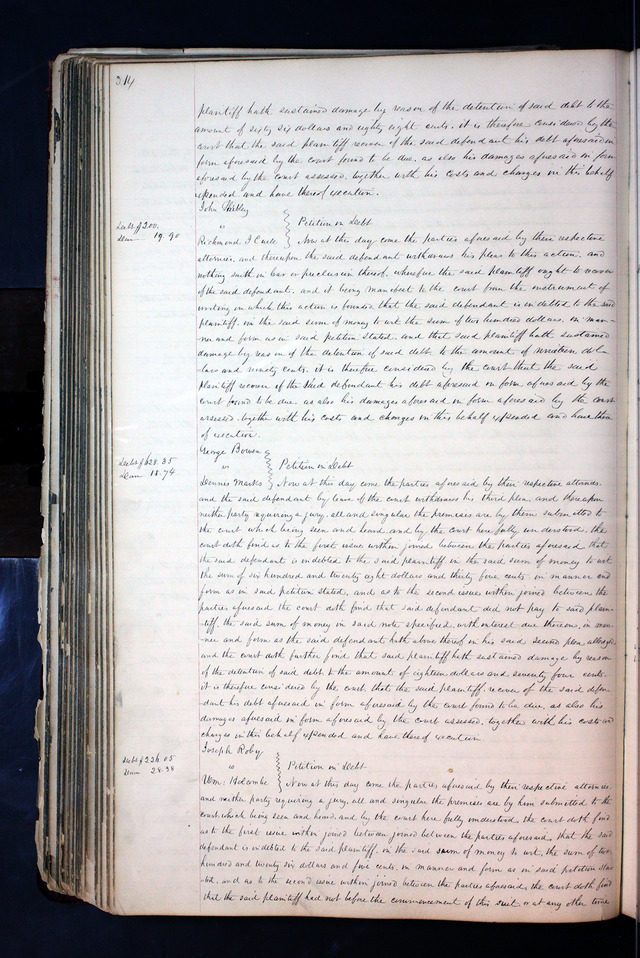 314
plaintiff hath sustained damage by reason of the detention of said debt to the
amount of sixty six dollars and eighty eight cents, it is therefore considered by the
court that the said plaintiff recover of the said defendant his debt aforesaid in
form aforesaid by the court found to be due, as also his damages aforesaid in form
aforesaid by the court assessed, together with his costs and charges in this behalf
expended and have thereof execution.
John
"
Petition in Debt
Debt $200.
Dam 19.90
Richmond J Curle
Now at this day come the parties aforesaid by their respective
attornies, and thereupon the said defendant withdraws his pleas to this action, and
nothing saith in bar or preclusion thereof, wherefore the said plaintiff ought to recover
of the said defendant, and it being manifest to the court from the instrument of
writing on which this action is founded, that the said defendant is indebted to the said
plaintiff in the said sum of money to wit the sum of two hundred dollars, in man-
ner and form as in said petition stated, and that said plaintiff hath sustained
damage by reason of the detention of said debt to the amount of nineteen dol-
lars and ninety cents, it is therefore considered by the court that the said
plaintiff recover of the said defendant his debt aforesaid in form aforesaid by the
court found to be due as also his damages aforesaid in form aforesaid by the court
assessed, together with his costs and charges in this behalf expended and have there
of execution.
George Bowen
"
Petition in Debt
Debt $628.35
Dam 18.74
Dennis Marks
Now at this day come the parties aforesaid by their respective attornies,
and the said defendant by leave of the court withdraws his third plea and thereupon
neither party requiring a jury, all and singular the premises are by them submitted to
the court which being seen and heard and by the court here fully understood, the
court doth find as to the first issue within joined between the parties aforesaid that
the said defendant is indebted to the said plaintiff in the said sum of money to wit
the sum of six hundred and twenty eight dollars and thirty five cents in manner and
form as in said petition stated, and as to the second issue within joined between the
parties aforesaid the court doth find that said defendant did not pay to said plain-
tiff the said sum of money in said note specified with interest due thereon, in man-
ner and form as the said defendant hath above thereof in his said second plea alleged
and the court doth further find that said plaintiff hath sustained damage by reason
of the detention of said debt, to the amount of eighteen dollars and seventy four cents.
it is therefore considered by the court that the said plaintiff recover of the said defen-
dant his debt aforesaid in form aforesaid by the court found to be due, as also his
damages aforesaid in form aforesaid by the court assessed, together with his costs and
charges in this behalf expended and have thereof execution
Joseph Roby
"
Petition in Debt
Debt $226.05
Dam 24.98
Wm. Holcombe
Now at this day come the parties aforesaid by their respective attornies,
and neither party requiring a jury, all and singular the premises are by him submitted to the
court which being seen and heard, and by the court here fully understood the court doth find
as to the first issue within joined between joined between the parties aforesaid, that the said
defendant is indebted to the said plaintiff in the said sum of money to wit, the sum of two
hundred and twenty six dollars and five cents, in manner and form as in said petition sta-
ted, and as to the second issue within joined between the parties aforesaid, the court doth find
that the said plaintiff had not before the commencement of this suit or at any other time